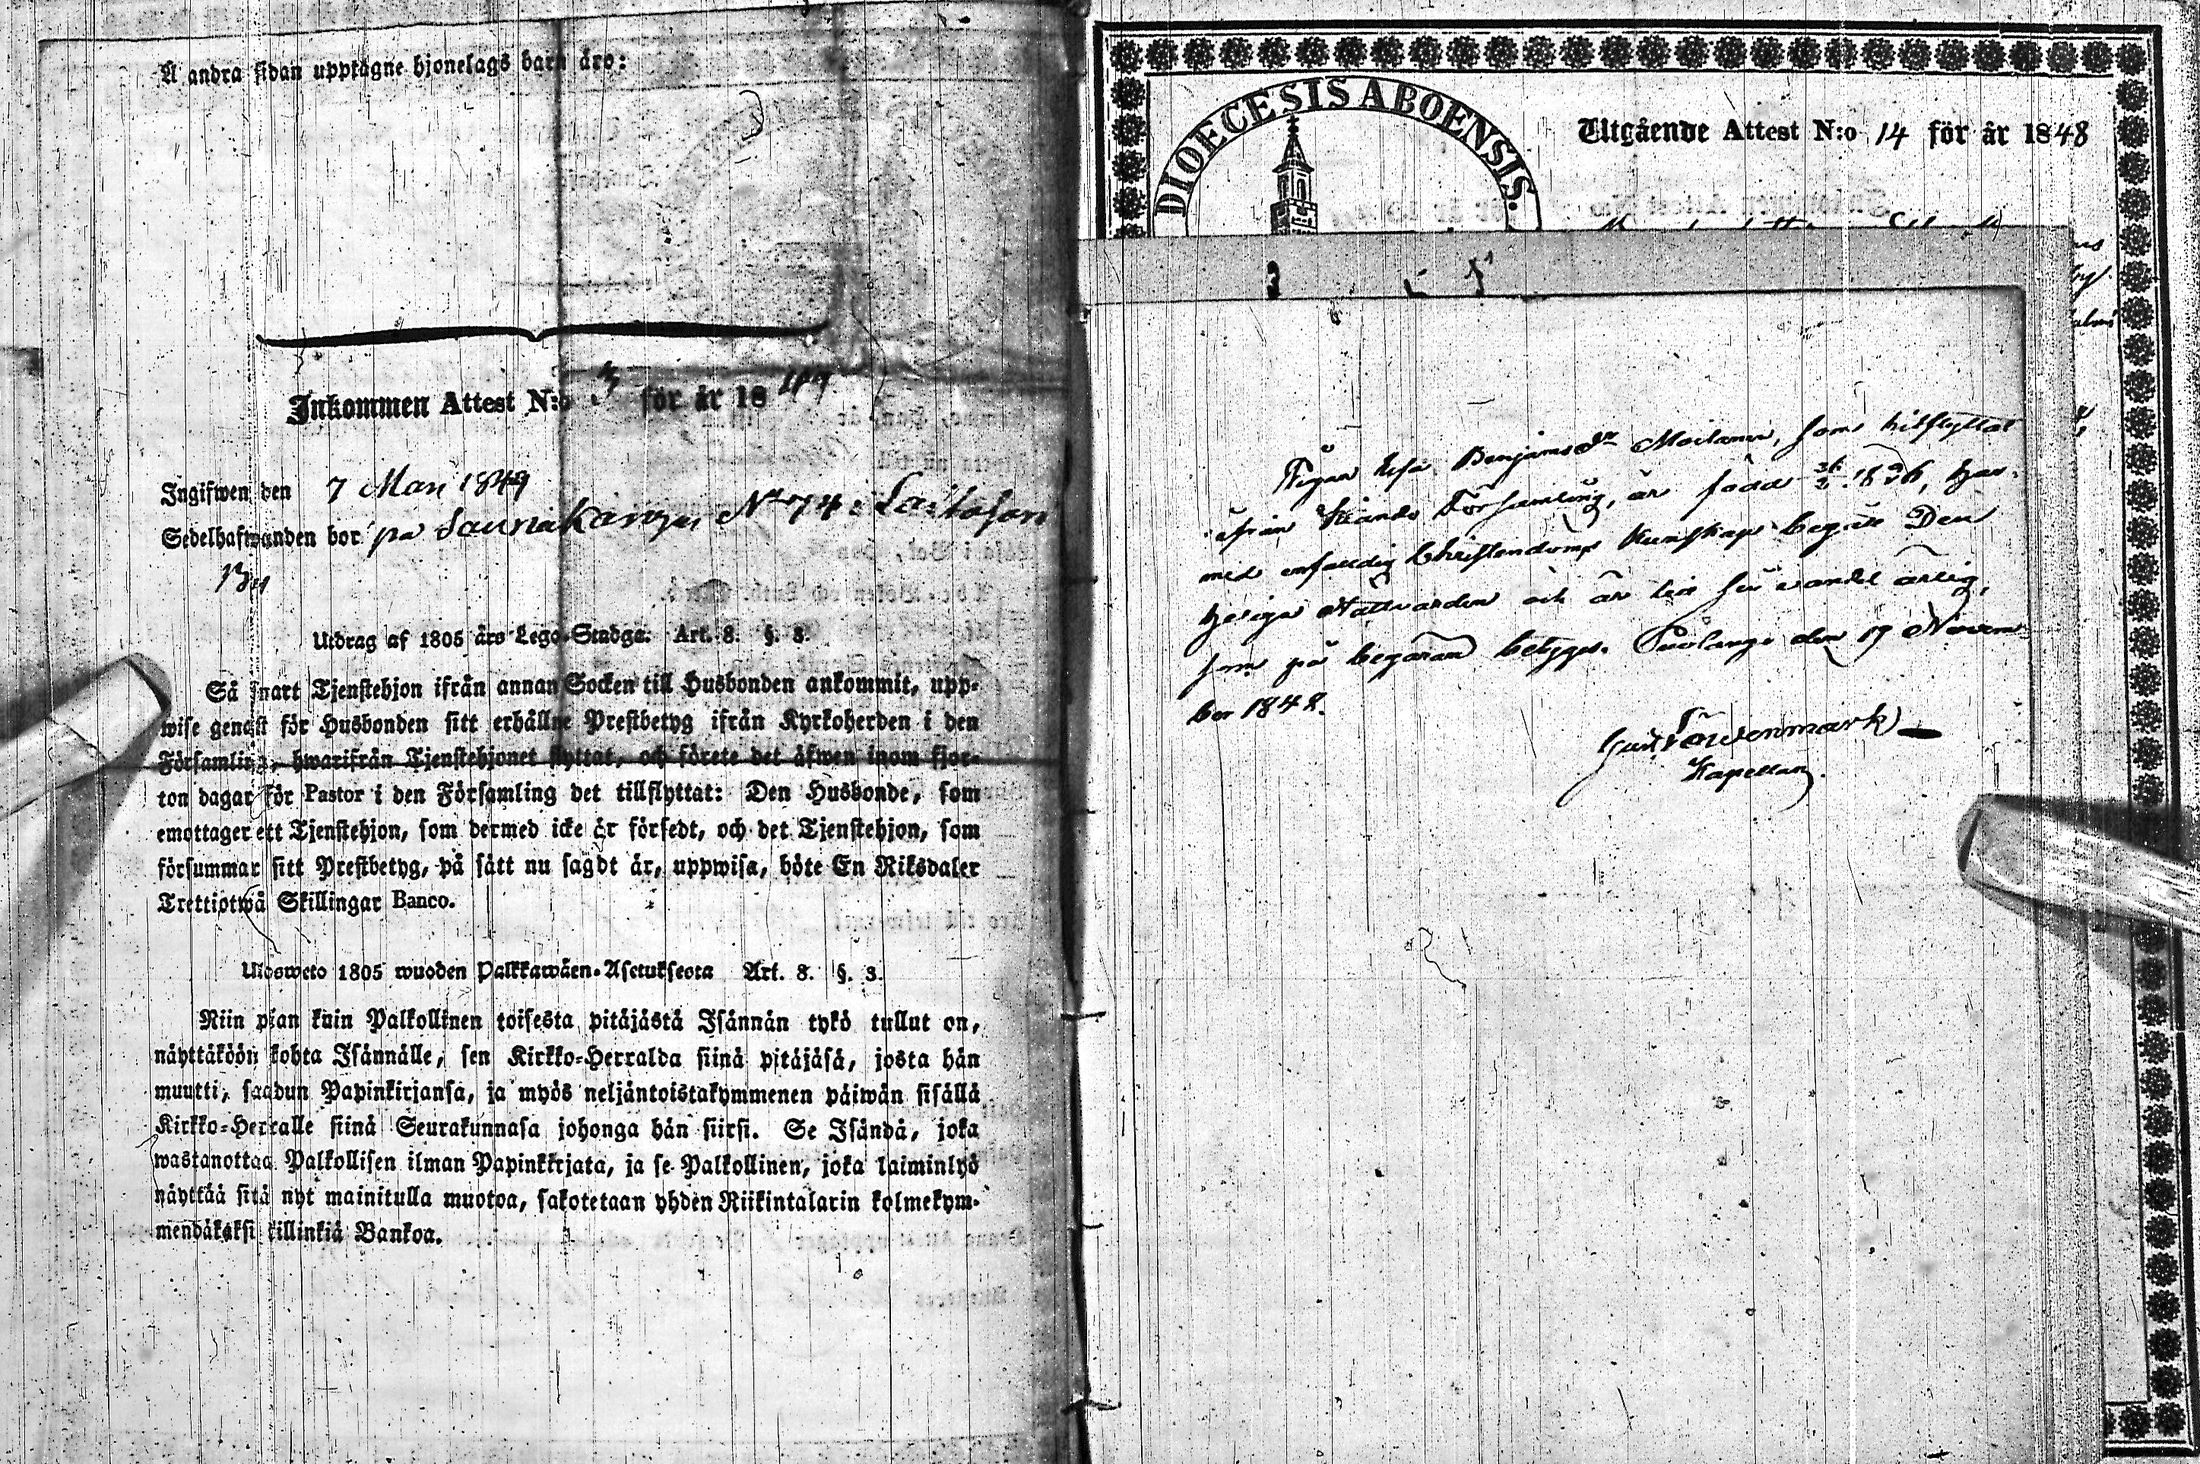 Å andra sidan upptagne hjonelags barn äro:
Inkommen Attest N:o 3 för år 1849
Ingifwen den 7 Mars 1849
Sedelhafwanden bor på Saunakangas No 74:
By
Utdrag af 1805 års Lego-Stadga. Art. 8. §. 3.
Så snart Tjenstehjon ifrån annan Socken till Husbonden ankommit, upp-
wise genast för Husbonden sitt erhållne Prestbetyg ifrån Kyrkoherden i den
Församling, hwarifrån Tjenstehjonet flyttat, och förete det äfwen inom fjor-
ton dagar för Pastor i den Församling det tillflyttat: Den Husbonde, som
emottager ett Tjenstehjon, som dermed icke är försedt, och det Tjenstehjon, som
försummar sitt Prestbetyg, på sätt nu sagdt är, uppwisa, böte En Riksdaler
Trettiotwå Skillingar Banco.
Ulosweto 1805 wuoden Palkkawäen-Asetuksesta Art. 8. §. 3.
Niin pian kuin Palkollinen toisesta pitäjästä Isännän tykö tullut on,
näyttäköön kohta Isännälle, sen Kirkko-Herralda siinä pitäjäsä, josta hän
muutti, saadun Papinkirjansa, ja myös neljäntoistakymmenen päiwän sisällä
Kirkko-Herralle siinä Seurakunnasa johonga hän siirsi. Se Isändä, joka
wastanottaa Palkollisen ilman Papinkirjata, ja se Palkollinen, joka laiminlyö
näyttää sitä nyt mainitulla muotoa, sakotetaan yhden Riikintalarin kolmekym-
mendäkaksi killinkiä Bankoa.
DIOECESIS ABOENSIS.
Utgående Attest N:o 14 för år 1848
Pigan Benjamsdr Moilanen, som hitflyttat
ifrån Församling, är född 1826, har
med enfaldig Christendoms kunskap begått Den
Heliga Nattvarden och är till sin vandel ärlig,
som på begäran betygas. Puolango den 19 Novem-
ber 1848.
Gust. Löwenmark
Kapellan.